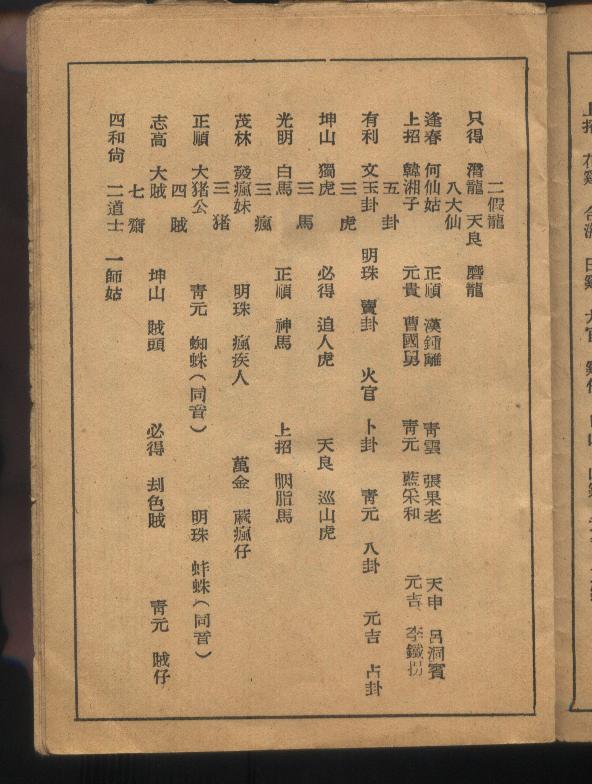 二假龍
只得 潛龍 天良 磨龍
八大仙
逢春 何仙姑 正順 漢鍾離 青雲 張果老 天申 呂洞賓
上招 韓湘子 元貴 曹國舅 青元 藍采和 元吉 李鐵拐
五卦
有利 文王卦 明珠 賣卦 火官 卜卦 青元 八卦 元吉 占卦
三虎
坤山 獨虎 必得 追人虎 天良 巡山虎
三馬
光明 白馬 正順 神馬 上招 胭脂馬
三瘋
茂林 發瘋妹 明珠 瘋疾人 萬金 瘋仔
三猪
正順 大猪公 青元 蜘蛛(同音) 明珠 蚌蛛(同音)
四賊
志高 大賊 坤山 賊頭 必得 刦色賊 青元 賊仔
七齋
四和尙 二道士 一師姑